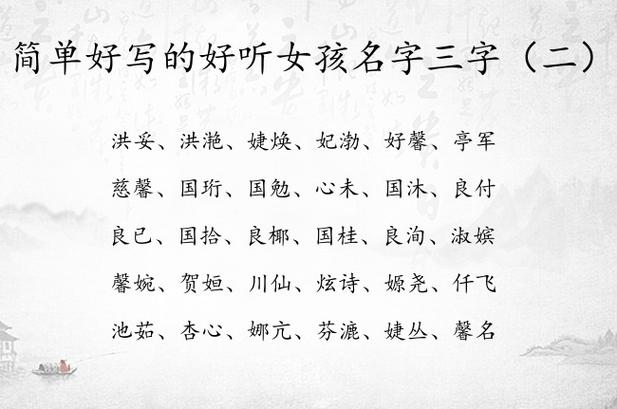 简单好写的好听女孩名字三字（二）
洪妥、洪滟、婕焕、妃渤、好馨、亭军
慈馨、国珩、国勉、心未、国沐、良付
良已、国拾、良椰、国桂、良洵、淑嫔
馨婉、贺姮、川仙、炫诗、嫄尧、仟飞
池茹、杏心、娜亢、芬漉、婕丛、馨名